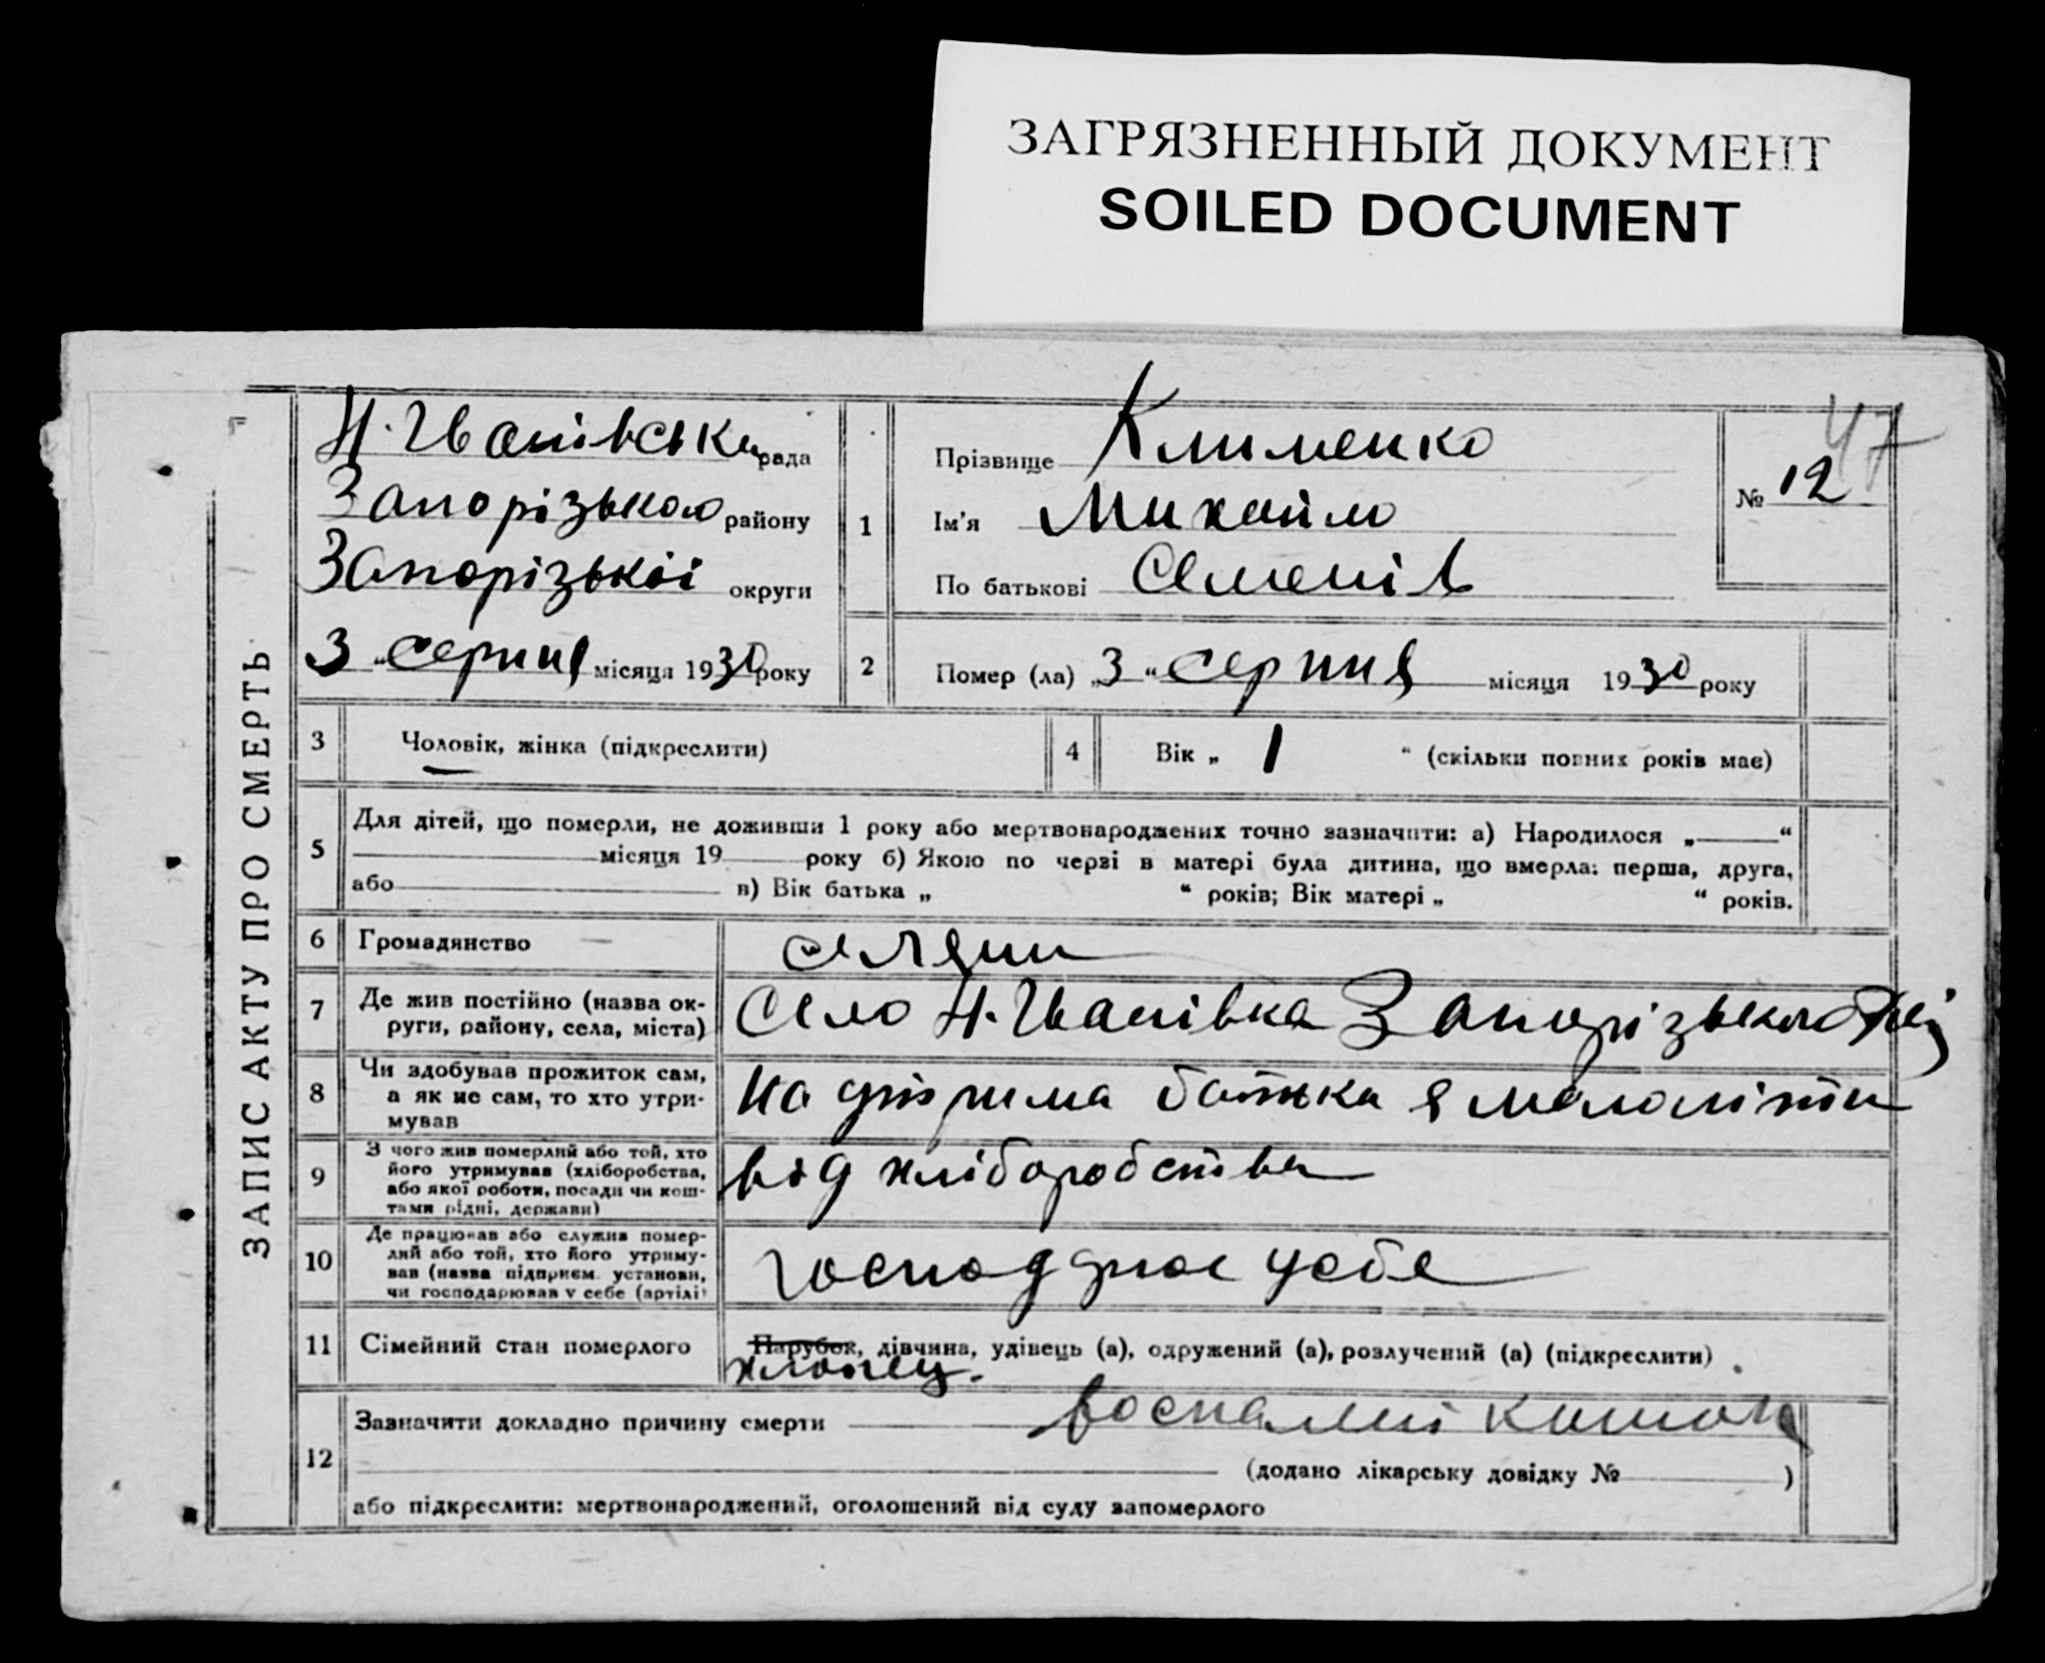 ЗАГРЯЗНЕННЫЙ ДОКУМЕНТ
SOILED DOCUMENT
47
ЗАПИС АКТУ ПРО СМЕРТЬ
Н. Іванівська рада
Запорізького району
Запорізької округи
3 " серпня місяця 1930 року
1
Прізвище Клименко
Ім'я Михайло
По батькові Семенів
№ 12
2 Помер (ла) „3 “ серпня місяця 1930 року
3 Чоловік, жінка (підкреслити)
4 Вік „ 1 “ (скільки повних років має)
5 Для дітей, що померли, не доживши 1 року або мертвонароджених точно зазначити: а) Народилося „ “
місяця 19 року б) Якою по черзі в матері була дитина, що вмерла: перша, друга,
або в) Вік батька „ “ років; Вік матері „ “ років.
6 Громадянство селянин
7 Де жив постійно (назва ок-
руги, району, села, міста)
Село Н. Іванівка Запорізького
8 Чи здобував прожиток сам,
а як не сам, то хто утри-
мував
На утрима батька
9 З чого жив померлий або той, хто
його утримував (хліборобства,
або якої роботи, посади чи кош-
тами рідні, держави)
від хліборобства
10 Де працював або служив помер-
лий або той, хто його утриму-
вав (назва підприєм. установи,
чи господарював у себе (артілі)
у себе
11 Сімейний стан померлого Парубок, дівчина, удівець (а), одружений (а), розлучений (а) (підкреслити)
хлопец.
12 Зазначити докладно причину смерти воспалені кишок
(додано лікарську довідку № )
або підкреслити: мертвонароджений, оголошений від суду запомерлого